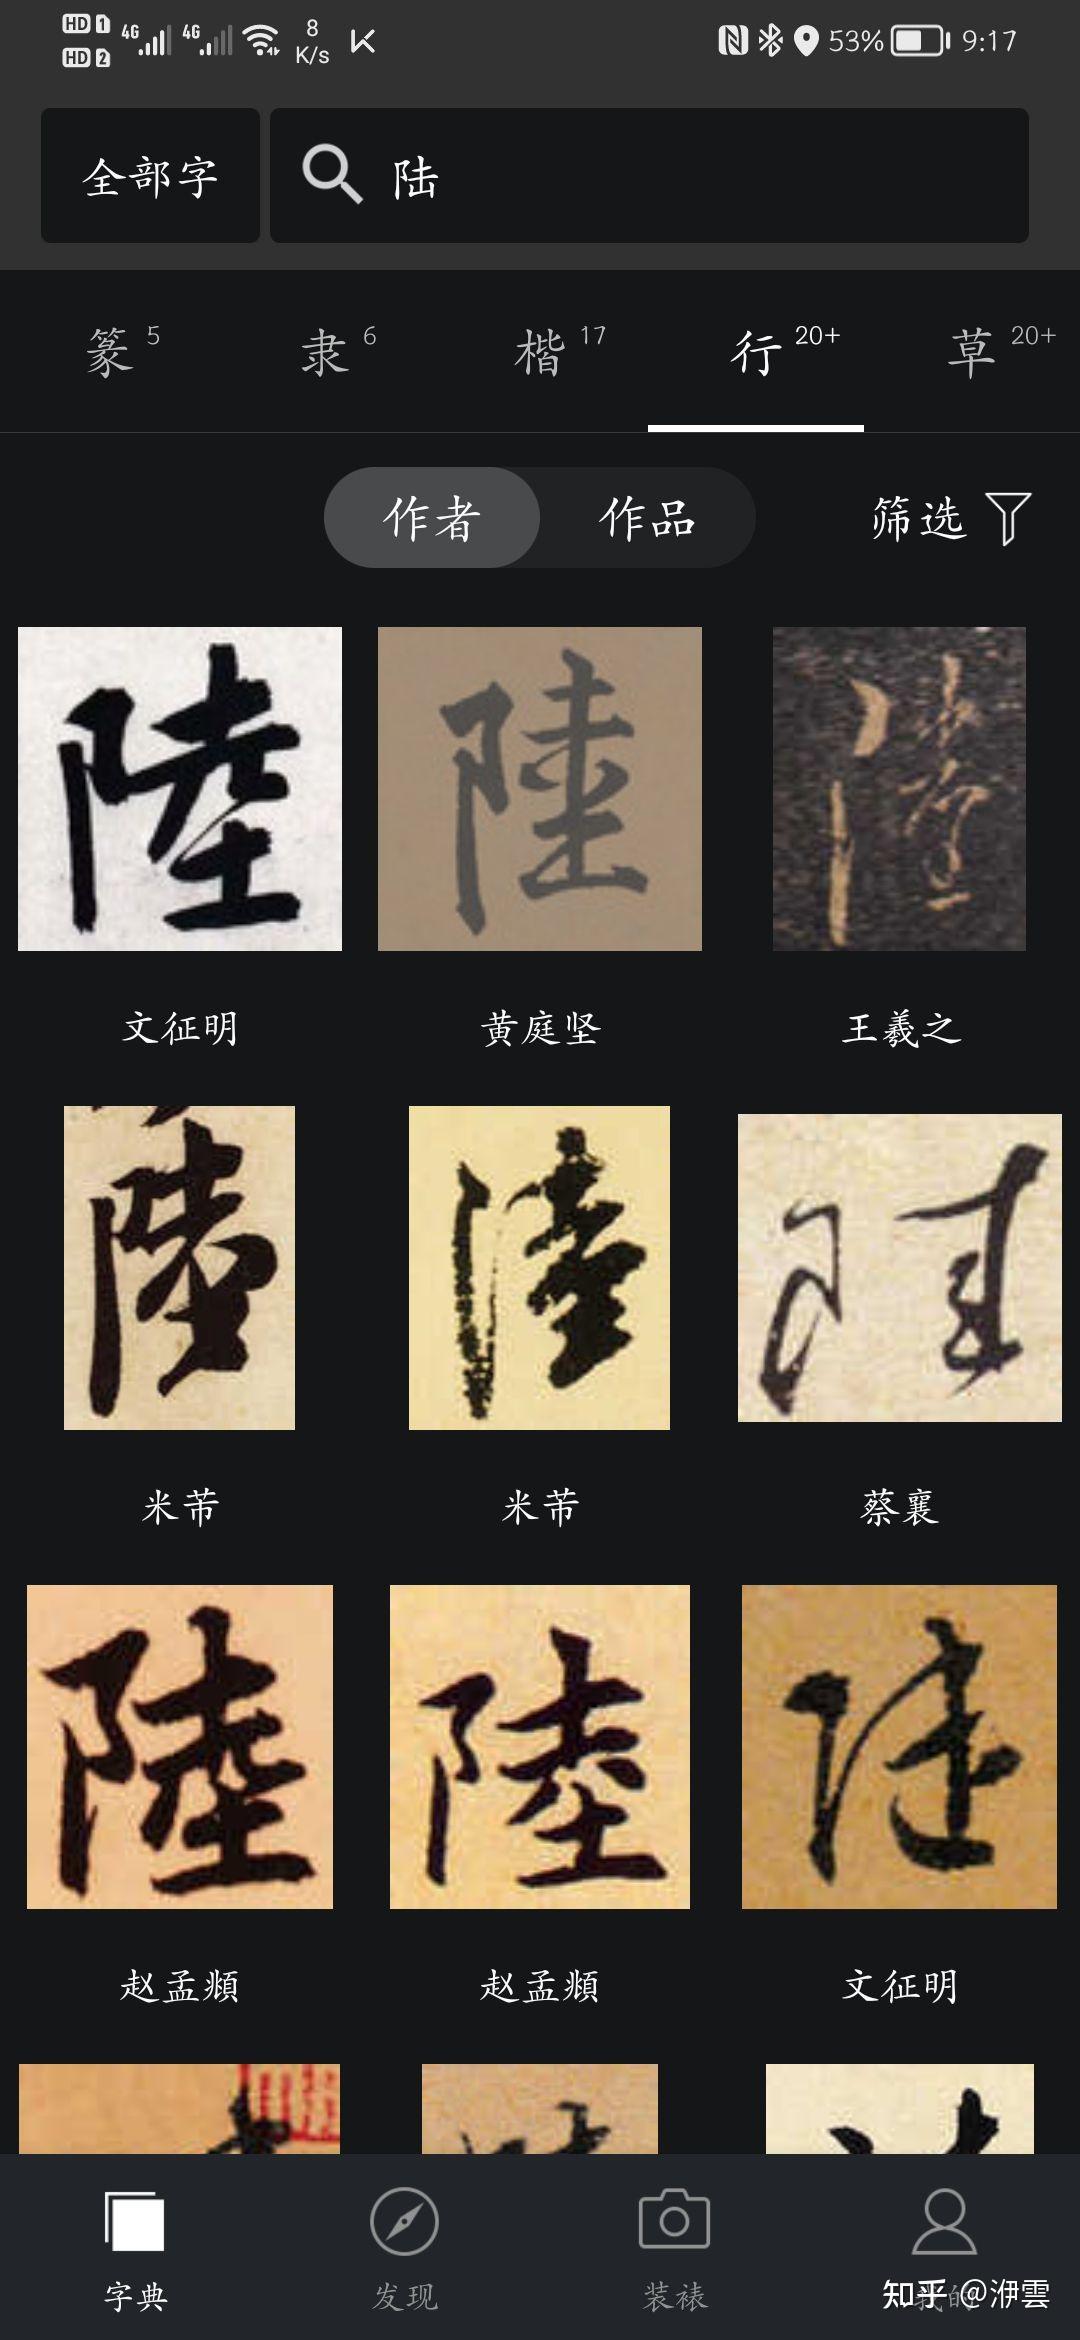 HD 1 4G 4G 8 K/s 53% 9:17
HD 2
全部字 陆
篆 5 隶 6 楷 17 行 20+ 草 20+
作者 作品 筛选
陸 陸 陸
文征明 黄庭坚 王羲之
陸 陸 陸
米芾 米芾 蔡襄
陸 陸 陸
赵孟頫 赵孟頫 文征明
字典 发现 装裱 我的
知乎 @洢雲